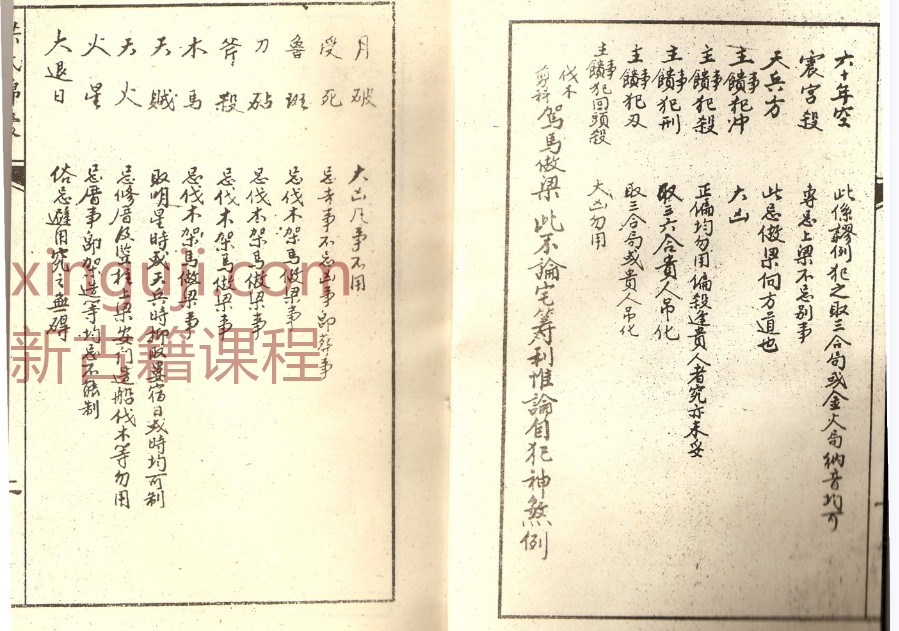 六十年空 此係謬例犯之取三合局或金火局納音均可
震宮殺 專忌上梁不忌別事
天兵方 此忌做梁向方道也
主事饋犯冲 大凶
主事饋犯殺 正偏均勿用偏殺逢貴人者究亦未妥
主事饋犯刑 取三六合貴人吊化
主事饋犯刃 取三合局或貴人吊化
主事饋犯回頭殺 大凶勿用
伐木
剪料
駕馬做梁 此不論宅 利惟論自犯神煞例
月破 大凶凡事不用
受死 忌吉事不忌凶事
魯班 忌伐木架馬做梁事
刀砧 忌伐木架馬做梁事
斧殺 忌伐木架馬做梁事
木馬 忌伐木架馬做梁事
天賊 取明星時或天兵時 宿日或時均可制
天火 忌修厝及豎柱上梁安門造船伐木等勿用
火星 忌厝事 架造等均忌不能制
大退日 俗忌避用究之無碍
xinguji.com
新古籍课程